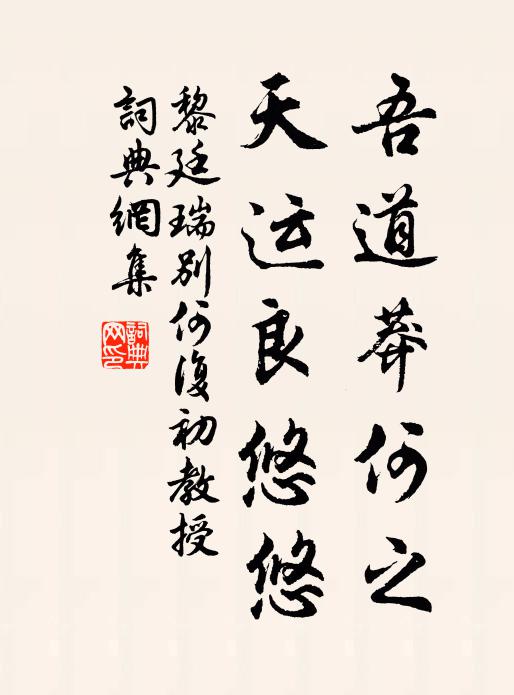 吾道莽何之
天运良悠悠
黎廷瑞别何復初教授
詞典網集
詞典網印